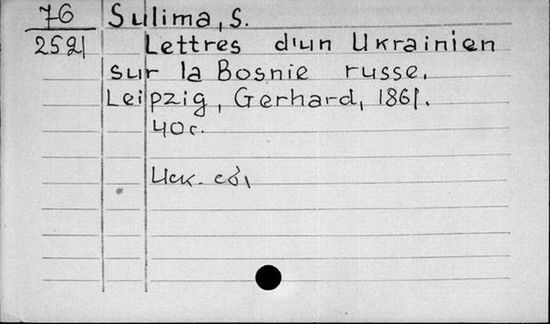 76 Sulima, S.
2521 Lettres d'un Ukrainien
sur la Bosnie russe.
Leipzig, Gerhard, 1861.
40c.
Иск. сб,